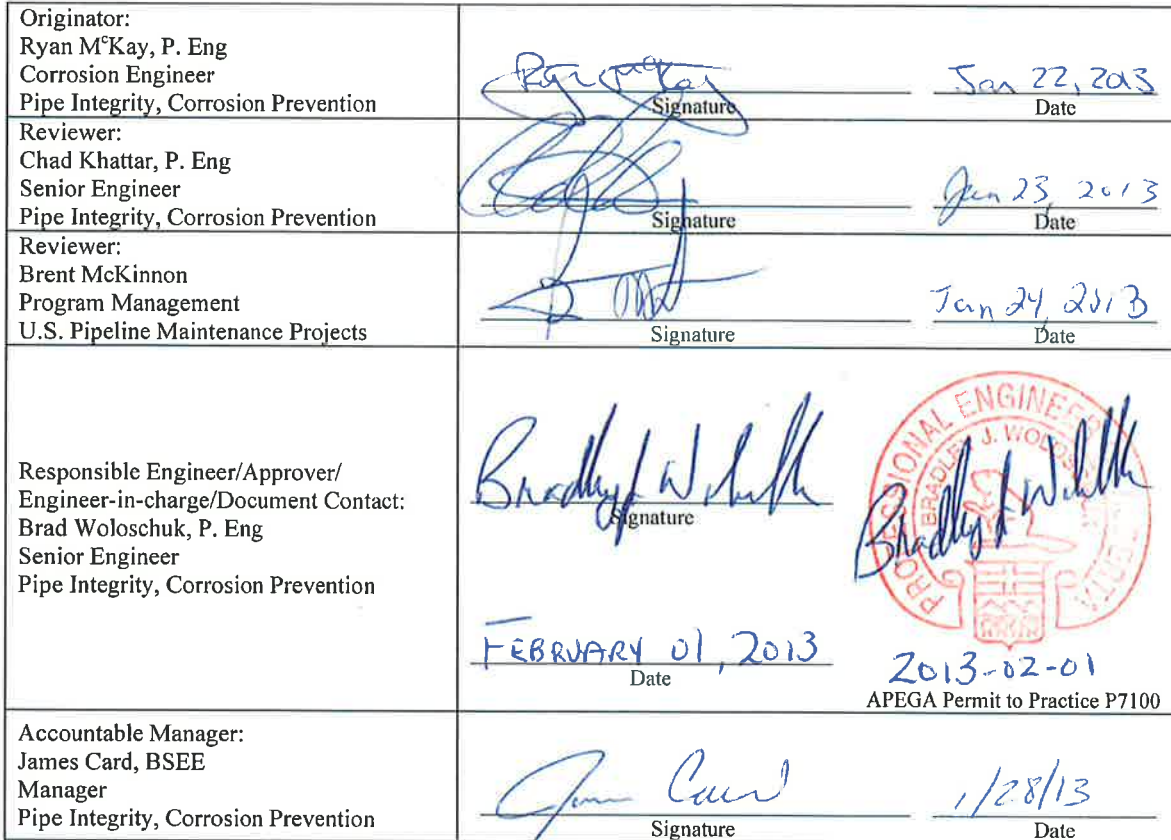 Originator:
Ryan McKay, P. Eng
Corrosion Engineer
Pipe Integrity, Corrosion Prevention
Signature
Jan 22, 2013
Date
Reviewer:
Chad Khattar, P. Eng
Senior Engineer
Pipe Integrity, Corrosion Prevention
Signature
Jan 23, 2013
Date
Reviewer:
Brent McKinnon
Program Management
U.S. Pipeline Maintenance Projects
Signature
Jan 24, 2013
Date
Responsible Engineer/Approver/
Engineer-in-charge/Document Contact:
Brad Woloschuk, P. Eng
Senior Engineer
Pipe Integrity, Corrosion Prevention
Signature
FEBRUARY 01, 2013
Date
BRADLEY J.
2013-02-01
APEGA Permit to Practice P7100
Accountable Manager:
James Card, BSEE
Manager
Pipe Integrity, Corrosion Prevention
Signature
1/28/13
Date